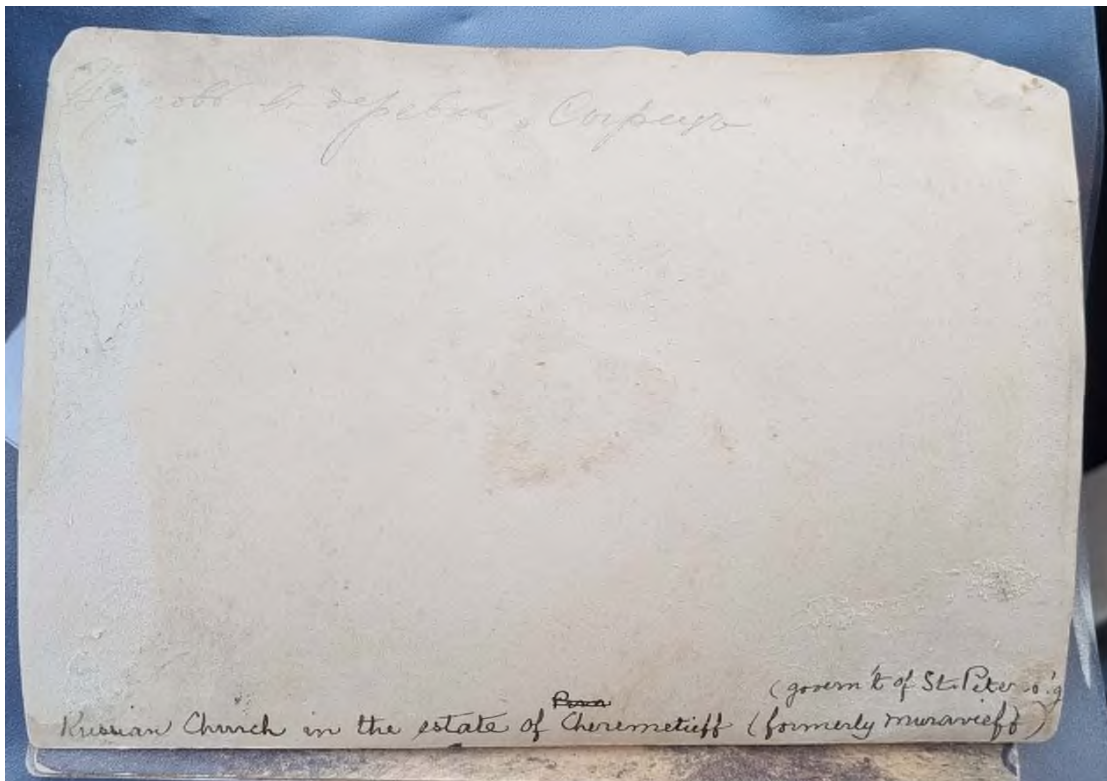 Церковь в деревне „Сиверцъ"
(govern't of St. Petersb'g
Russian Church in the estate of Cheremetieff (formerly Muravieff)